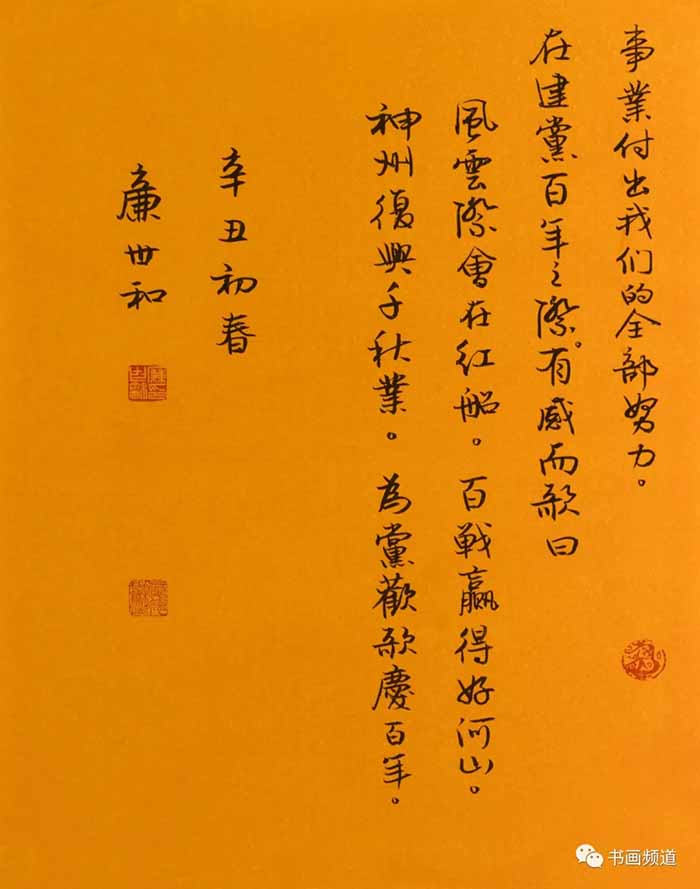 事業付出我们的全部努力。
在建黨百年之際。有感而歌曰
風雲際會在红船。百戦赢得好河山。
神州復興千秋業。為黨歡歌慶百年。
辛丑初春
廉世和
书画频道